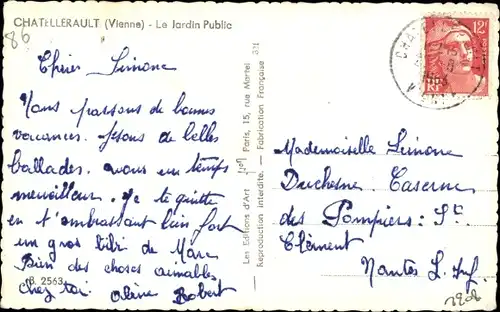 CHATELLERAULT (Vienne) - Le Jardin Public
86
Chère Simone
Nous passons de bonnes
vacances. fesons de belles
ballades. nous un temps
merveilleux. Je te quitte
en t'embrassant bien fort
un gros bibi de Marc
Bien des choses aimables
chez toi Robert
B. 2563
Les Editions d'Art Paris, 15, rue Martel 311
Reproduction interdite. - Fabrication Française
12F
RF
Mademoiselle Simone
Duchesne. Caserne
des Pompiers. St
Clément
Nantes L. Inf.